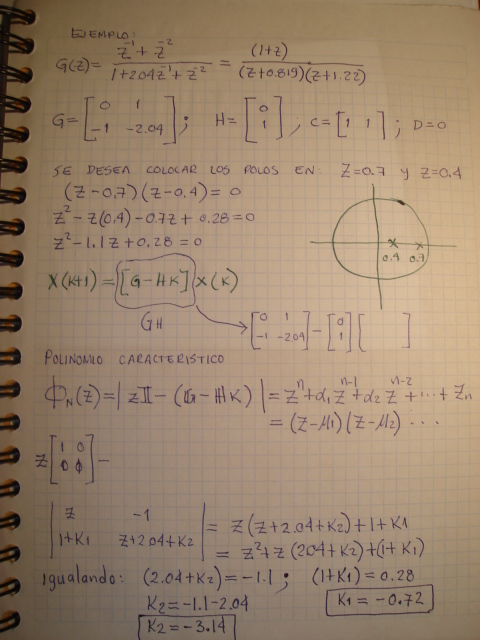 EJEMPLO:
G(z) = (z⁻¹ + z⁻²) / (1 + 2.04z⁻¹ + z⁻²) = (1+z) / ((z+0.819)(z+1.22))
G = [0 1; -1 -2.04]; H = [0; 1], C = [1 1]; D=0
SE DESEA COLOCAR LOS POLOS EN: Z=0.7 y Z=0.4
(Z-0.7)(Z-0.4) = 0
Z² - Z(0.4) - 0.7Z + 0.28 = 0
Z² - 1.1Z + 0.28 = 0
0.4 0.7
X(K+1) = [G-HK] X(K)
GH
[0 1; -1 -2.04] - [0; 1] [ ]
POLINOMIO CARACTERISTICO
Φ_N(Z) = |ZI - (G-HK)| = Zⁿ + α₁Zⁿ⁻¹ + α₂Zⁿ⁻² + ... + Zn
= (Z-μ₁)(Z-μ₂) ...
Z[1 0; 0 0] -
|Z -1; 1+K1 Z+2.04+K2| = Z(Z+2.04+K2)+1+K1
= Z²+Z(2.04+K2)+(1+K1)
Igualando: (2.04+K2) = -1.1; (1+K1) = 0.28
K2 = -1.1-2.04 K1 = -0.72
K2 = -3.14